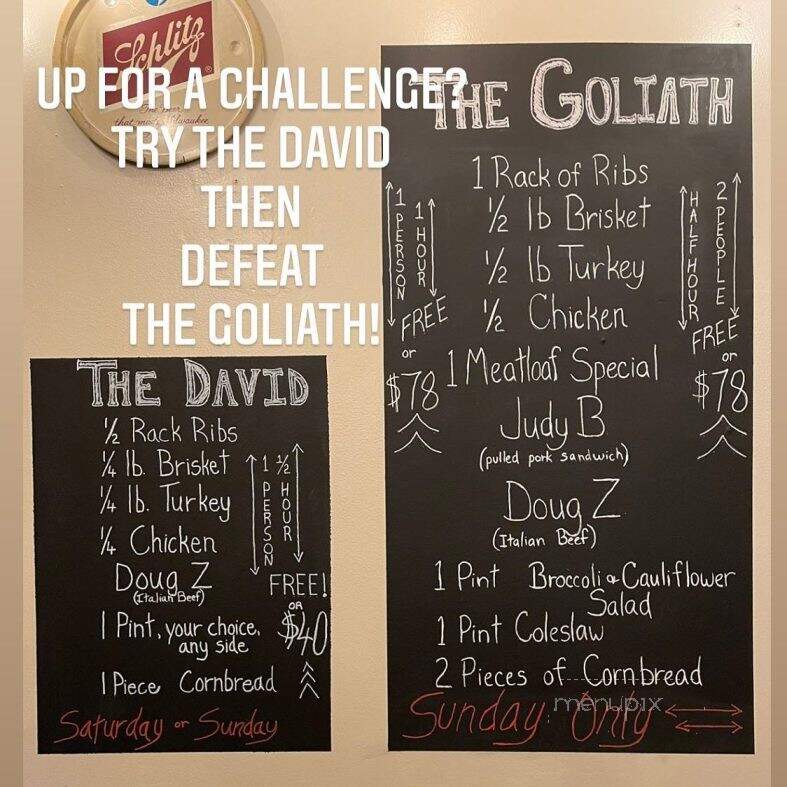 Schlitz
UP FOR A CHALLENGE?
TRY THE DAVID
THEN
DEFEAT
THE GOLIATH!
THE DAVID
1/2 Rack Ribs
1/4 lb. Brisket
1/4 lb. Turkey
1/4 Chicken
Doug Z
(Italian Beef)
1 Pint, your choice,
any side
1 Piece Cornbread
1 PERSON
1/2 HOUR
FREE!
OR
$40
Saturday or Sunday
THE GOLIATH
1 Rack of Ribs
1/2 lb Brisket
1/2 lb Turkey
1/2 Chicken
1 Meatloaf Special
Judy B
(pulled pork sandwich)
Doug Z
(Italian Beef)
1 Pint Broccoli & Cauliflower
Salad
1 Pint Coleslaw
2 Pieces of Cornbread
1 PERSON
1 HOUR
FREE
or
$78
HALF HOUR
2 PEOPLE
FREE
or
$78
Sunday Only
menupix